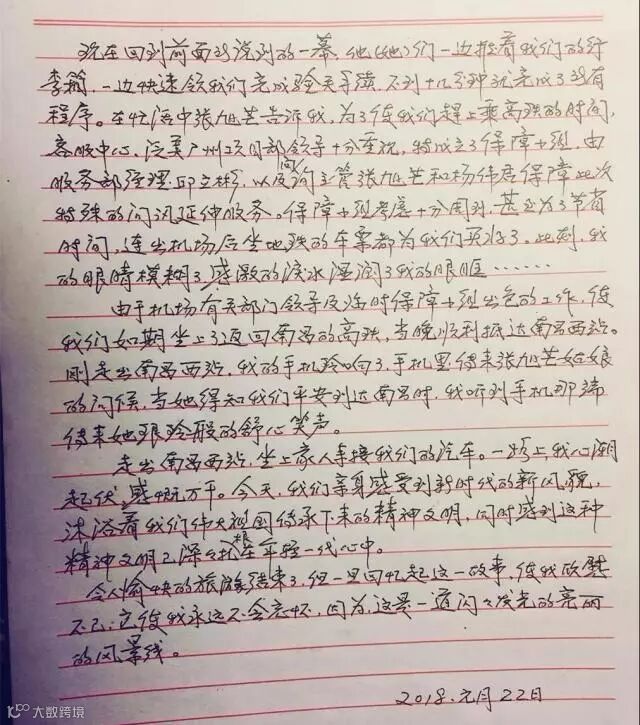 现在回到前面我说到的一幕,他(她)们一边推着我们的行
李箱,一边快速领我们完成验关手续,不到十几分钟就完成了所有
程序。在忙活中张旭芒告诉我,为了使我们赶上乘高铁的时间,
客服中心、泛美广州项目部领导十分重视,特成立了保障小组,由
服务部经理邱立彬,以及问询主管张旭芒和杨伟居保障此次
特殊的问讯延伸服务。保障小组考虑十分周到,甚至为了节省
时间,连出机场后坐地铁的车票都为我们买好了。此刻,我
的眼睛模糊了感激的泪水湿润了我的眼眶……
由于机场有关部门领导及临时保障小组出色的工作,使
我们如期坐上了返回南昌的高铁,当晚顺利抵达南昌西站。
刚走出南昌西站,我的手机铃响了,手机里传来张旭芒姑娘
的问候,当她得知我们平安到达南昌时,我听到手机那端
传来她银铃般的舒心笑声。
走出南昌西站,坐上家人来接我们的汽车。一路上我心潮
起伏,感慨万千。今天,我们亲身感受到新时代的新风貌,
沐浴着我们伟大祖国传承下来的精神文明,同时感到这种
精神文明已深深扎根在年轻一代心中。
令人愉快的旅游结束了,但一旦回忆起这一故事,使我欣慰
不已;它使我永远不会忘怀,因为,这是一道闪闪发光的亮丽
的风景线。
2018.元月22日
大数跨境